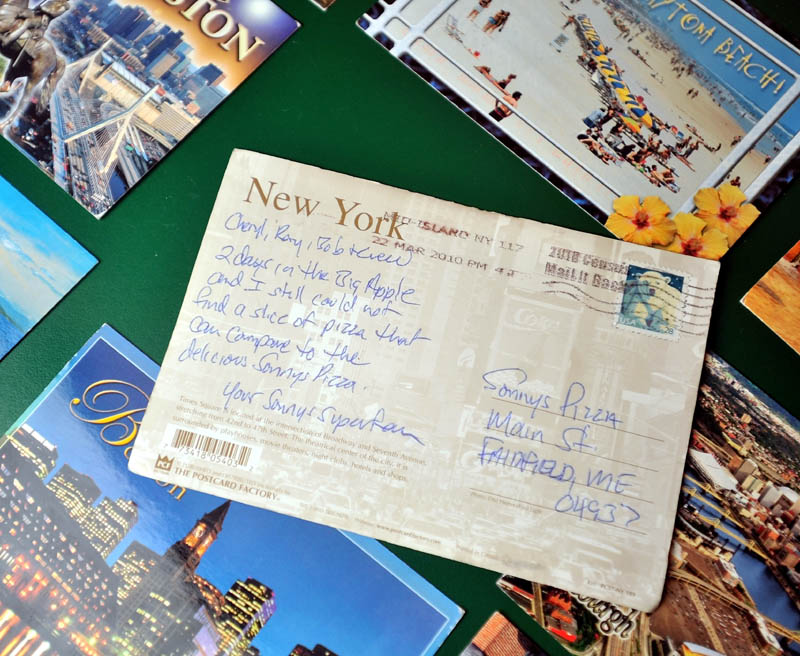 STON
YTOM BEACH
New York
MID-ISLAND NY 117
22 MAR 2010 PM 4
Mail It Back
Cheryl, Rory, Bob & crew
2 days in the Big Apple
and I still could not
find a slice of pizza that
can compare to the
delicious Sonnys Pizza.
Your Sonnys Superfan
Sonnys Pizza
Main St.
FAIRFIELD, ME
04937
Times Square is located at the intersection of Broadway and Seventh Avenue,
stretching from 42nd to 47th Street. The theatrical center of the city, it is
surrounded by playhouses, movie theaters, night clubs, hotels and shops.
73418 05403
THE POSTCARD FACTORY